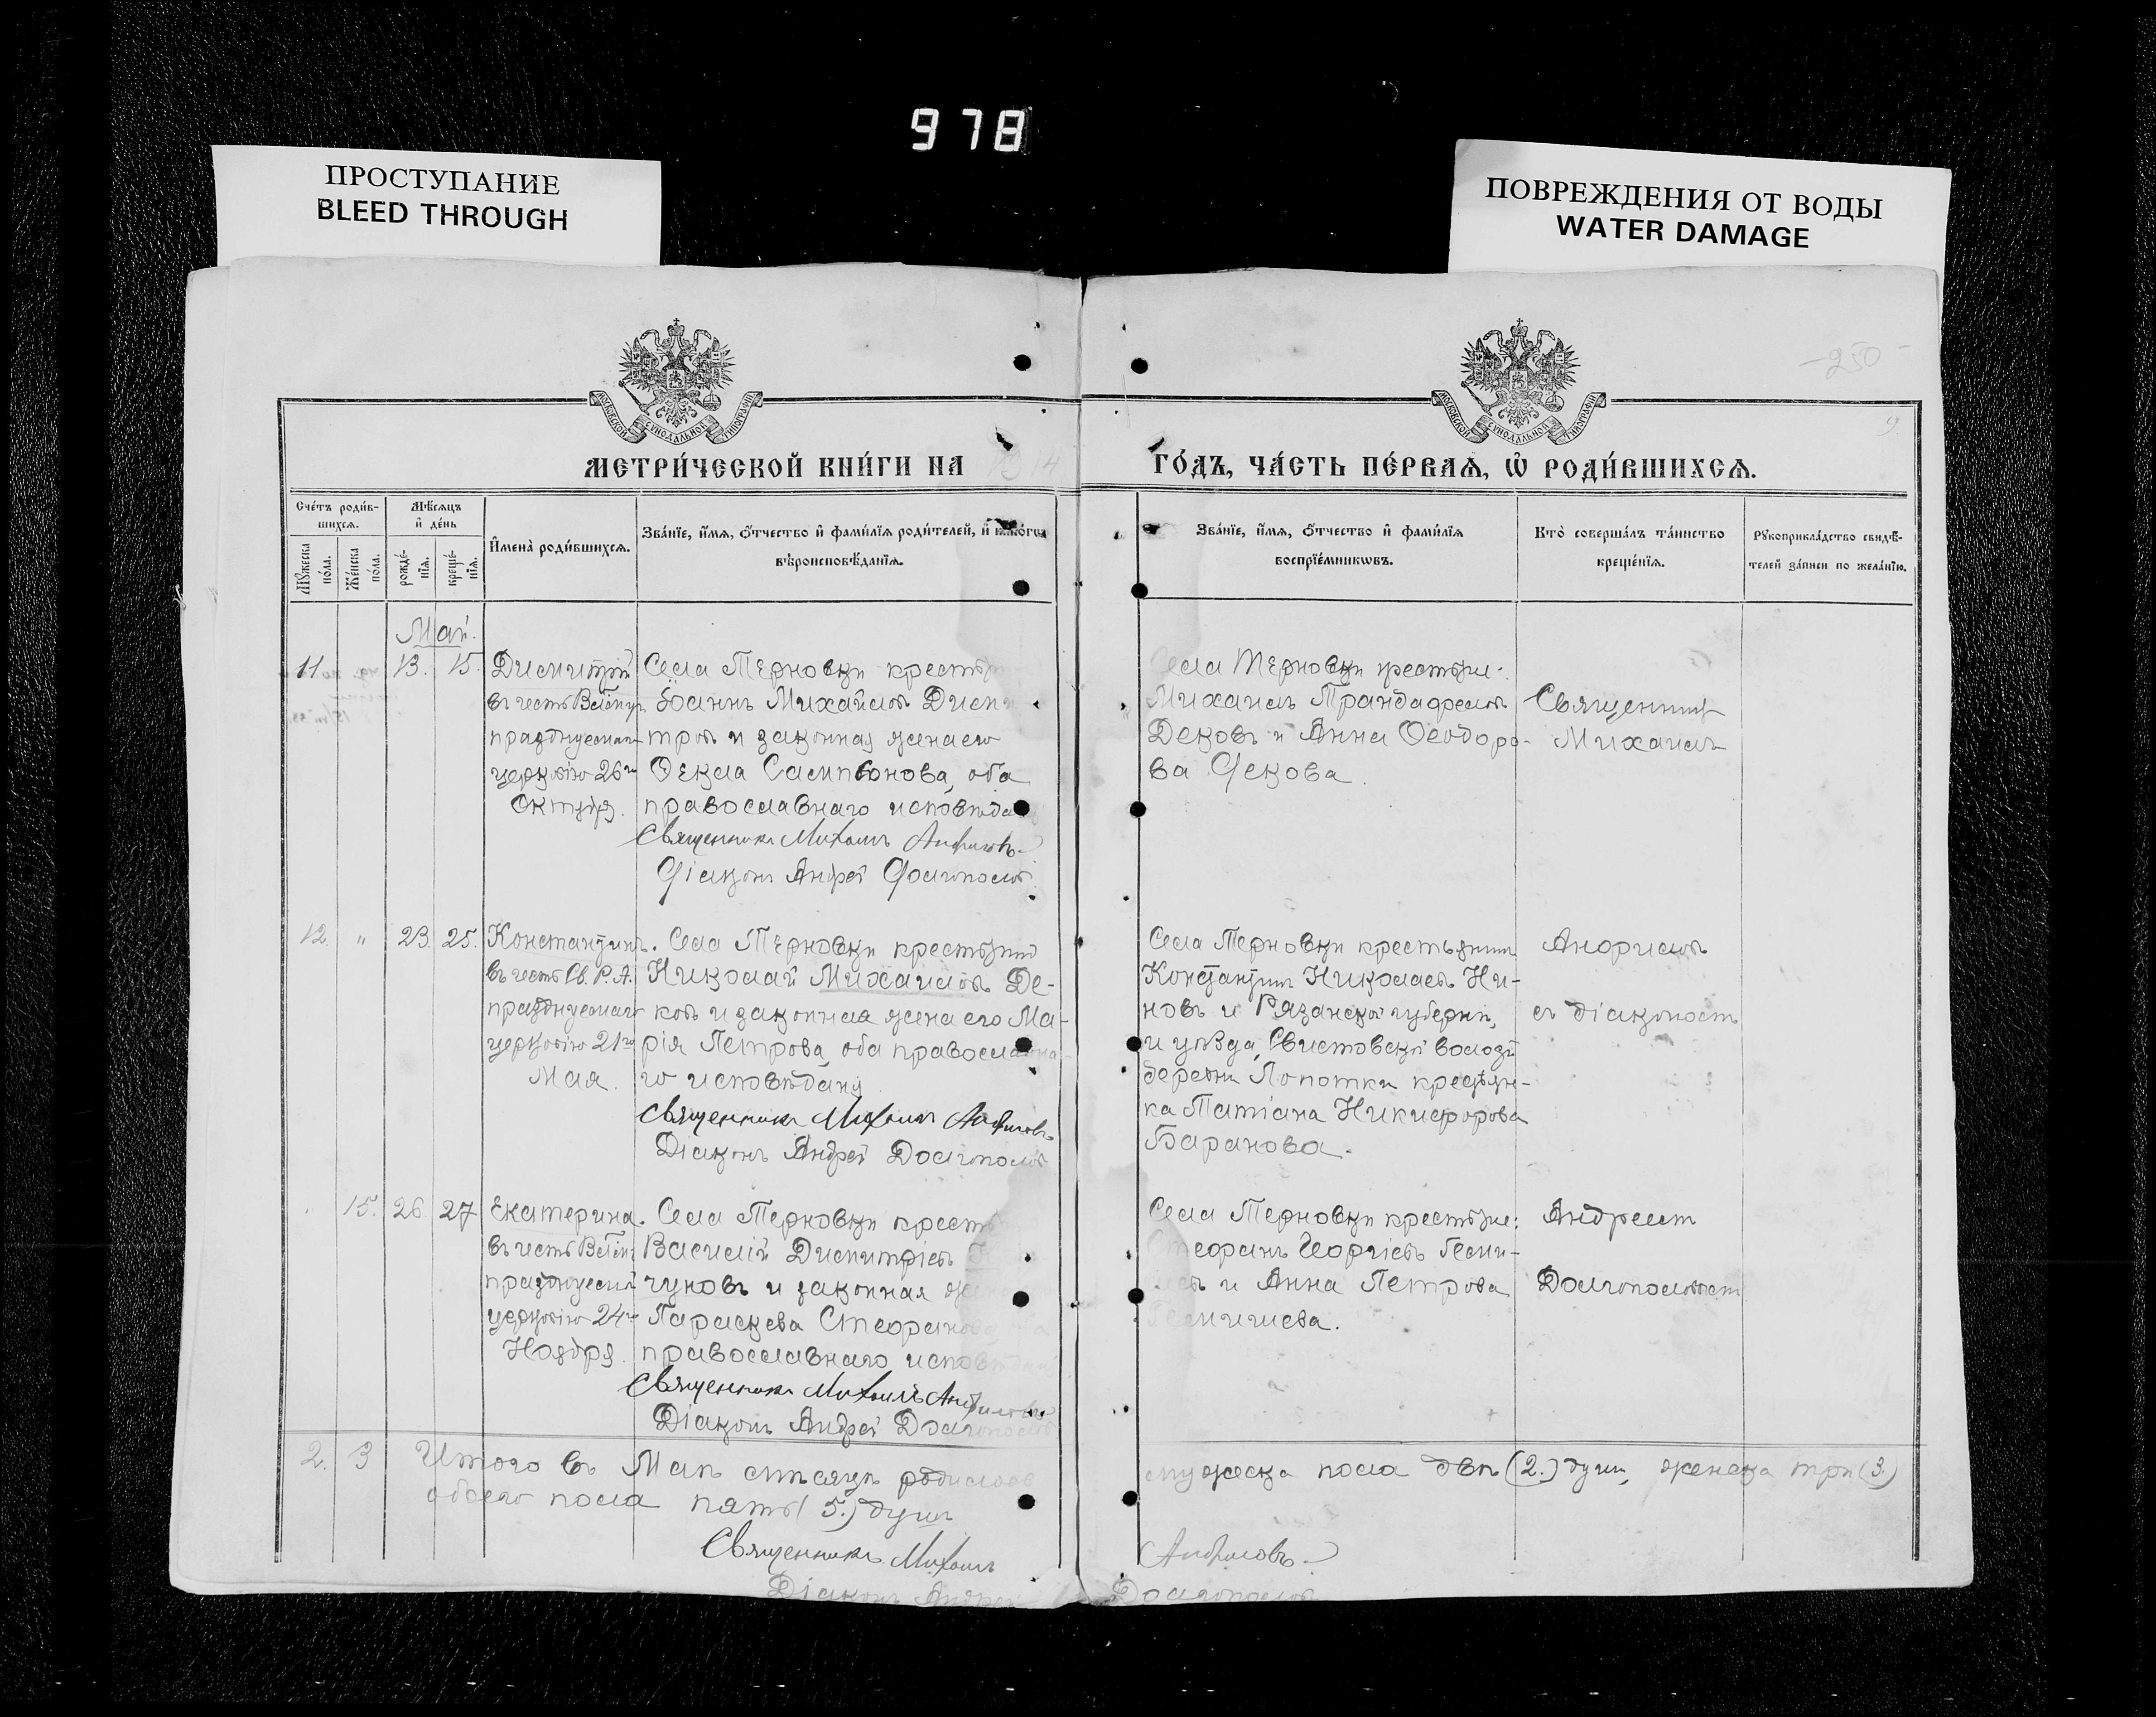 978
ПРОСТУПАНИЕ
BLEED THROUGH
ПОВРЕЖДЕНИЯ ОТ ВОДЫ
WATER DAMAGE
-250-
9
МОСКОВСКОЙ СѴНОДАЛЬНОЙ ТИПОГРАФІИ
МОСКОВСКОЙ СѴНОДАЛЬНОЙ ТИПОГРАФІИ
МЕТРИ́ЧЕСКОЙ КНИ́ГИ НА 1914 ГО́ДЪ, ЧА́СТЬ ПЕ́РВАѦ, Ѡ҆ РОДИ́ВШИХСѦ.
Сче́тъ роди́в-
шихсѧ.
Мꙋ́жеска по́ла.
Же́нска по́ла.
Мѣ́сѧцъ
и҆ де́нь
рожде́-
нїѧ.
креще́-
нїѧ.
И҆мена̀ роди́вшихсѧ.
Зва́нїе, и҆́мѧ, ѻ҆́тчество и҆ фами́лїѧ роди́телей, и҆ како́гѡ
вѣроисповѣ́данїѧ.
Зва́нїе, и҆́мѧ, ѻ҆́тчество и҆ фами́лїѧ
воспрїе́мникѡвъ.
Кто̀ соверша́лъ та́инство
креще́нїѧ.
Рꙋкоприкла́дство свидѣ́-
телей за́писи по жела́нїю.
Май.
11. 13. 15.
Димитрій
въ честь
празднуемаго
церковію 26го
Октября.
Села Терновки
Іоаннъ Михайловъ Дими-
тровъ и законная жена его
Ѳекла Сампсонова, оба
православнаго исповѣда
Священникъ Михаилъ Анфимовъ
Діаконъ Андрей Долгополовъ
Села Терновки крестьяне:
Михаилъ Трандафиловъ
Дековъ и Анна Ѳеодоро-
ва Декова.
Священникъ
Михаилъ
12. " 23. 25.
Константинъ.
въ честь Св. Р. А.
празднуемаго
церковію 21го
Мая.
Села Терновки крестьянинъ
Николай Михаиловъ Де-
ковъ и законная жена его Ма-
рія Петрова, оба православна-
го исповѣданія
Священникъ Михаилъ Анфимовъ
Діаконъ Андрей Долгополовъ
Села Терновки крестьянинъ
Константинъ Николаевъ Ни-
новъ и Рязанской губерніи,
и уѣзда, волости
деревни Лопотки крестьян-
ка Татіана Никифорова
Баранова.
Анфимовъ
съ діакономъ
15. 26. 27
Екатерина.
въ честь
празднуемой
церковію 24го
Ноября.
Села Терновки
Василій Димитріевъ
чуновъ и законная жена
Параскева Стефанова
православнаго исповѣдан
Священникъ Михаилъ Анфимовъ
Діаконъ Андрей Долгополовъ
Села Терновки крестьяне:
Стефанъ Георгіевъ
и Анна Петрова
Андреемъ
Долгополовымъ
2. 3 Итого въ Маѣ мѣсяцѣ родилось мужеска пола двѣ (2.) души, женска три (3.)
обоего пола пять (5.) душъ
Священникъ Михаилъ Анфимовъ
Діаконъ Андрей Долгополовъ